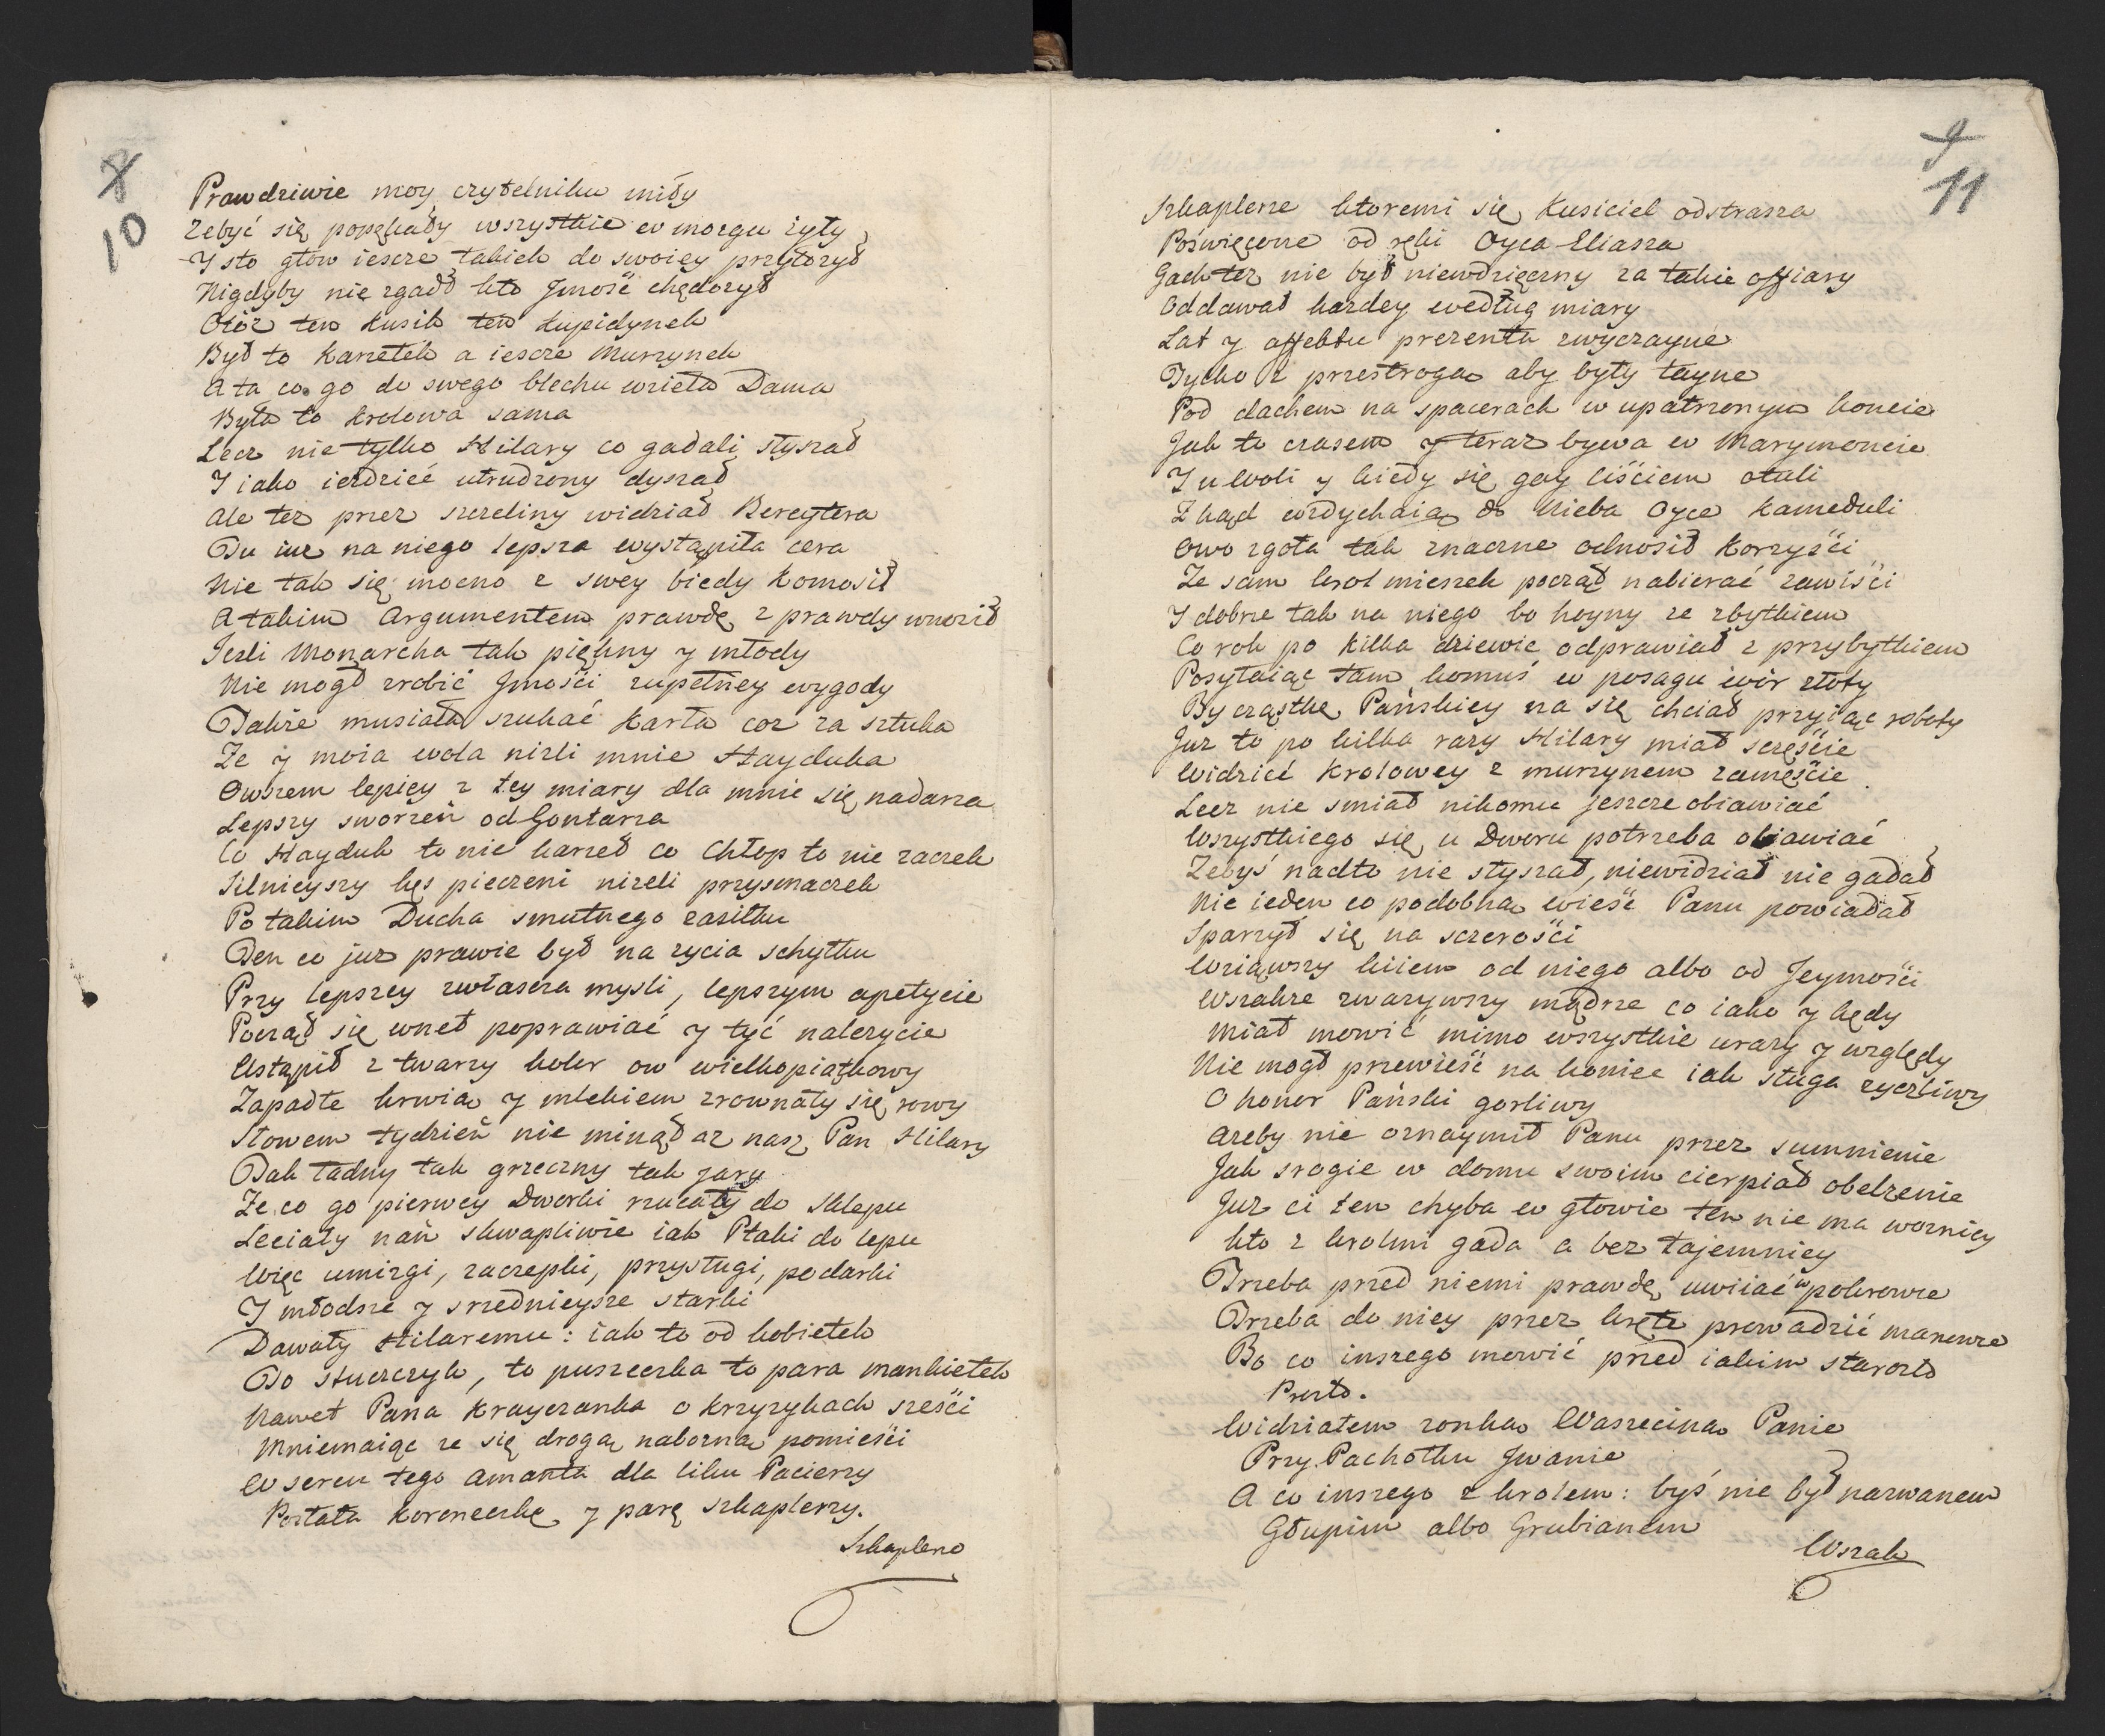 8
10
Prawdziwie moy czytelniku miły
Zebyć się popękały wszystkie w mozgu zyły
Y sto głow iescze takich do swoiey przyłozył
Nigdyby nie zgadł kto Jmość chędozył
Otóz ten kusik ten kupidynek
Był to karzełek a iescze Murzynek
A ta co go do swego blechu wzieła Dama
Była to krolowa sama
Lecz nie tylko Hilary co gadali słyszał
I iako ieździéć utrudzony dyszał
Ale tez przez szczeliny widział Bereytera
Tu iuz na niego lepsza wystąpiła cera
Nie tak się mocno z swey biedy komosił
A takim Argumentem prawdę z prawdy wnosił
Jezli Monarcha tak piękny y młody
Nie mogł zrobić Jmości zupełney wygody
Takze musiała szukać Karła coz za sztuka
Ze y moia wola nizli mnie Hayduka
Owszem lepiey z tey miary dla mnie się nadarza
Lepszy sworzeń od Gontarza
Co Hayduk to nie karzeł co Chłop to nie zaczek
Silnieyszy kęs pieczeni nizeli przysmaczek
Po takim Ducha smutnego zasiłku
Ten co juz prawie był na zycia schyłku
Przy lepszey zwłascza mysli, lepszym apetycie
Począł się wnet poprawiać y tyć nalezycie
Ustąpił z twarzy kolor ow wielkopiątkowy
Zapadłe krwią y mlekiem zrownały się rowy
Słowem tydzień nie minął az nasz Pan Hilary
Tak ładny tak grzeczny tak jary
Ze co go pierwey Dworki rzucały do Sklepu
Leciały nań skwapliwie iak Ptaki do lepu
Więc umizgi, zaczepki, przysługi, podarki
I młodsze y srzednieysze starki
Dawały Hilaremu: iak to od kobietek
To stuczczyk, to puszeczka to para mankietek
Nawet Pana Krayczanka o krzyzykach sześci
Mniemaiąc ze się drogą nabozną pomieści
W sercu tego amanta dla liku Pacierzy
Posłała koroneczkę y parę szkaplerzy.
Szkaplerze
9
11
Szkaplerze ktoremi się Kusiciel odstrasza
Poświęcone od ręki Oyca Eliasza
Gach tez nie był niewdzięczny za takie offiary
Oddawał kazdey według miary
Lat y affektu prezenta zwyczayne
Tylko z przestrogą aby były tayne
Pod dachem na spacerach w upatrzonym koncie
Jak to czasem y teraz bywa w Marymoncie
I u Woli y kiedy się gay liściem otuli
Zkąd wzdychaią do Nieba Oyce Kameduli
Owo zgoła tak znaczne odnosił korzyści
Ze sam krol mieszek począł nabierać zawiści
I dobrze tak na niego bo hoyny ze zbytkiem
Co rok po kilka dziewic odprawiał z przybytkiem
Posyłaiąc tam komuś w posagu wór złoty
By cząstkę Pańskiey na się chciał przyiąc roboty
Juz to po kilka razy Hilary miał sczęście
Widzieć Krolowey z murzynem zamęście
Lecz nie smiał nikomu jeszcze obiawiać
Wszystkiego się u Dworu potrzeba obawiać
Zebyś nadto nie słyszał, niewidział nie gadał
Nie ieden co podobną wieść Panu powiadał
Sparzył się na sczerości
Wziąwszy kiiem od niego albo od Jeymości
Wszakze zwazywszy mądrze co iako y kędy
Miał mowić mimo wszystkie urazy y względy
Nie mogł przewieść na koniec iak sługa zyczliwy
O honor Pański gorliwy
Azeby nie oznaymił Panu przez sumnienie
Jak srogie w domu swoim cierpiał obelzenie
Juz ci ten chyba w głowie ten nie ma woznicy
kto z krolmi gada a bez tajemnicy
Trzeba przed niemi prawdę uwiiać w pokrowce
Trzeba do niey przez kręte prowadzić manowce
Bo co inszego mowić przed iakim starostą
Prosto.
Widziałem zonkę Waszecina Panie
Przy Pachołku Jwanie
A co inszego z krolem: byś nie był nazwanem
Głupim albo Grubianem
Wszak